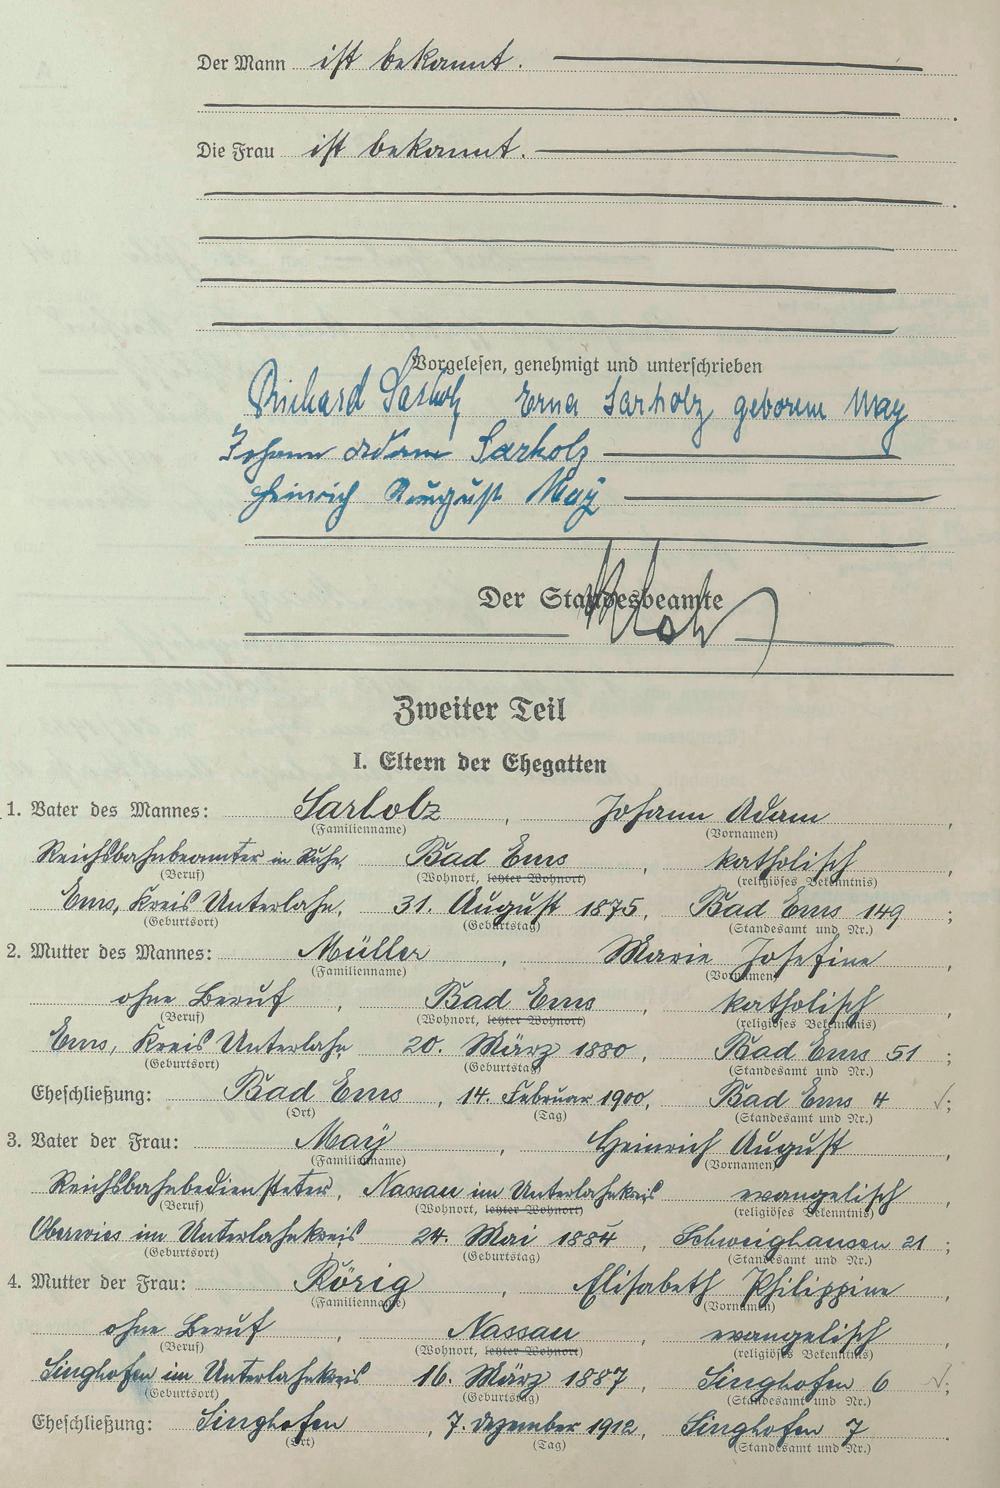 Der Mann ist bekannt.
Die Frau ist bekannt.
Vorgelesen, genehmigt und unterschrieben
Richard Sarholz Erna Sarholz geborene May
Johann Adam Sarholz
Heinrich August Maÿ
Der Standesbeamte
Zweiter Teil
I. Eltern der Ehegatten
1. Vater des Mannes: Sarholz, Johann Adam,
(Familienname) (Vornamen)
Reichsbahnbeamter in Ruhe, Bad Ems, katholisch
(Beruf) (Wohnort, letzter Wohnort) (religiöses Bekenntnis)
Ems, Kreis Unterlahn, 31. August 1875, Bad Ems 149;
(Geburtsort) (Geburtstag) (Standesamt und Nr.)
2. Mutter des Mannes: Müller, Marie Josefine,
(Familienname) (Vornamen)
ohne Beruf, Bad Ems, katholisch,
(Beruf) (Wohnort, letzter Wohnort) (religiöses Bekenntnis)
Ems, Kreis Unterlahn 20. März 1880, Bad Ems 51;
(Geburtsort) (Geburtstag) (Standesamt und Nr.)
Eheschließung: Bad Ems, 14. Februar 1900, Bad Ems 4 √;
(Ort) (Tag) (Standesamt und Nr.)
3. Vater der Frau: Maÿ, Heinrich August,
(Familienname) (Vornamen)
Reichsbahnbediensteter, Nassau im Unterlahnkreis evangelisch,
(Beruf) (Wohnort, letzter Wohnort) (religiöses Bekenntnis)
Oberwies im Unterlahnkreis 24. Mai 1884, Schweighausen 21;
(Geburtsort) (Geburtstag) (Standesamt und Nr.)
4. Mutter der Frau: Rörig, Elisabeth Philippine,
(Familienname) (Vornamen)
ohne Beruf, Nassau, evangelisch,
(Beruf) (Wohnort, letzter Wohnort) (religiöses Bekenntnis)
Singhofen im Unterlahnkreis 16. März 1887, Singhofen 6 √;
(Geburtsort) (Geburtstag) (Standesamt und Nr.)
Eheschließung: Singhofen, 7. Dezember 1912, Singhofen 7.
(Ort) (Tag) (Standesamt und Nr.)